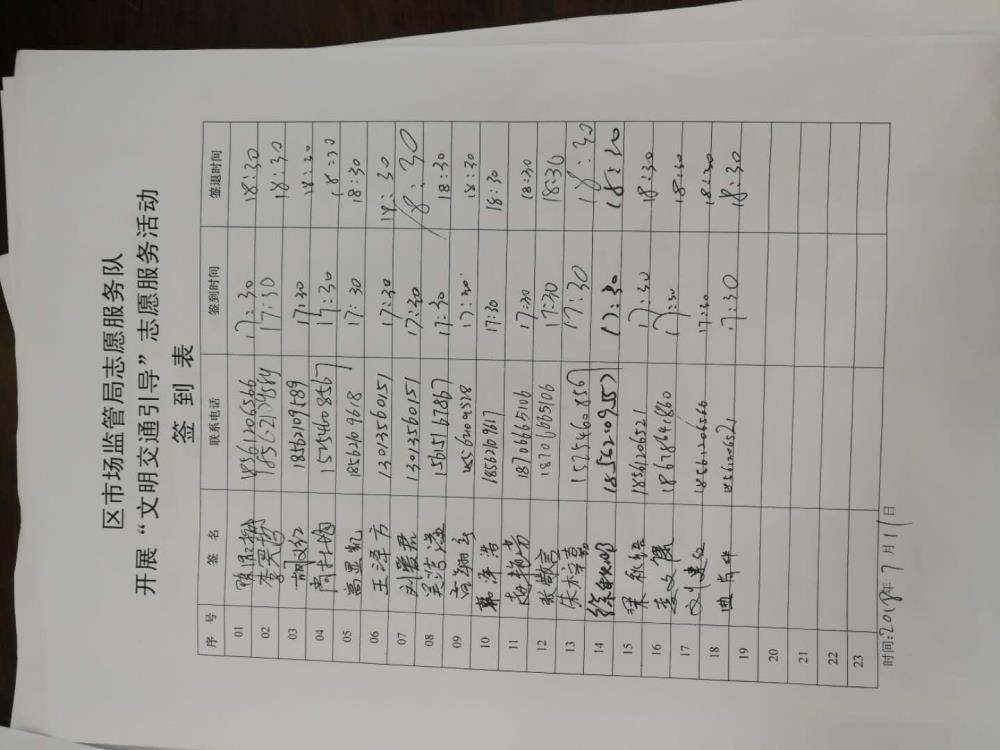 区市场监管局志愿服务队
开展“文明交通引导”志愿服务活动
签 到 表
序 号 签 名 联系电话 签到时间 签退时间
01 18561206566 17:30 18:30
02 17:30 18:30
03 18562109589 17:30 18:30
04 15254608567 17:30 18:30
05 高显凯 18562109618 17:30 18:30
06 王泽方 13013560151 17:30 18:30
07 刘爱君 13013560151 17:30 18:30
08 吴洁 15615167867 17:30 18:30
09 17:30 18:30
10 韩泽浩 18562109617 17:30 18:30
11 赵艳芳 18706665106 17:30 18:30
12 张敬言 18706665106 17:30 18:30
13 15254608567 17:30 18:30
14 18562109557 17:30 18:30
15 18561206521 17:30 18:30
16 18678641860 17:30 18:30
17 18561206566 17:30 18:30
18 18561206521 17:30 18:30
19
20
21
22
23
时间:2018年7月11日